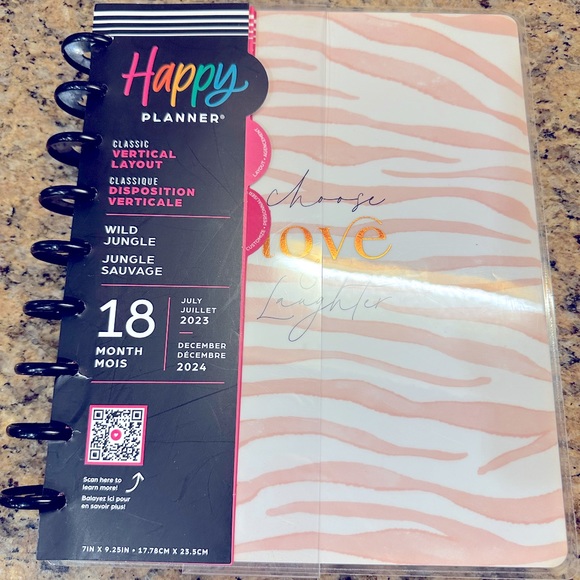 Happy
PLANNER®
CLASSIC
VERTICAL
LAYOUT
CLASSIQUE
DISPOSITION
VERTICALE
WILD
JUNGLE
JUNGLE
SAUVAGE
18
MONTH
MOIS
JULY
JUILLET
2023
DECEMBER
DÉCEMBRE
2024
Scan here to
learn more!
Balayez ici pour
en savoir plus!
7IN X 9.25IN • 17.78CM X 23.5CM
choose
love
&
Laughter